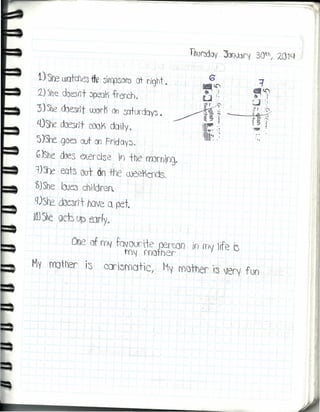 Thursday January 30th, 2014
1) She watches the simpsons at night.
2) She doesn't speak french.
3) She doesn't work on saturdays.
4) She doesn't cook daily.
5) She goes out on Fridays.
6) She does exercise in the morning.
7) She eats out on the weekends.
8) She loves children.
9) She doesn't have a pet.
10) She gets up early.
6
7
One of my favourite person in my life is
my mother
My mother is carismatic, My mother is very fun